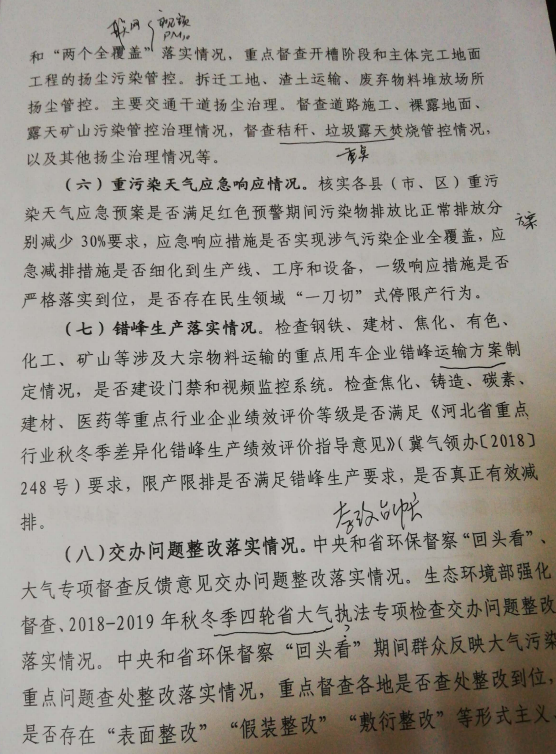 联网 视频
PM10
和“两个全覆盖”落实情况，重点督查开槽阶段和主体完工地面
工程的扬尘污染管控。拆迁工地、渣土运输、废弃物料堆放场所
扬尘管控。主要交通干道扬尘治理。督查道路施工、裸露地面、
露天矿山污染管控治理情况，督查秸秆、垃圾露天焚烧管控情况，
以及其他扬尘治理情况等。
（六）重污染天气应急响应情况。核实各县（市、区）重污
染天气应急预案是否满足红色预警期间污染物排放比正常排放分
别减少 30%要求，应急响应措施是否实现涉气污染企业全覆盖，应
急减排措施是否细化到生产线、工序和设备，一级响应措施是否
严格落实到位，是否存在民生领域“一刀切”式停限产行为。
（七）错峰生产落实情况。检查钢铁、建材、焦化、有色、
化工、矿山等涉及大宗物料运输的重点用车企业错峰运输方案制
定情况，是否建设门禁和视频监控系统。检查焦化、铸造、碳素、
建材、医药等重点行业企业绩效评价等级是否满足《河北省重点
行业秋冬季差异化错峰生产绩效评价指导意见》（冀气领办〔2018〕
248 号）要求，限产限排是否满足错峰生产要求，是否真正有效减
排。
（八）交办问题整改落实情况。中央和省环保督察“回头看”、
大气专项督查反馈意见交办问题整改落实情况。生态环境部强化
督查、2018-2019 年秋冬季四轮省大气执法专项检查交办问题整改
落实情况。中央和省环保督察“回头看”期间群众反映大气污染
重点问题查处整改落实情况，重点督查各地是否查处整改到位，
是否存在“表面整改”“假装整改”“敷衍整改”等形式主义、